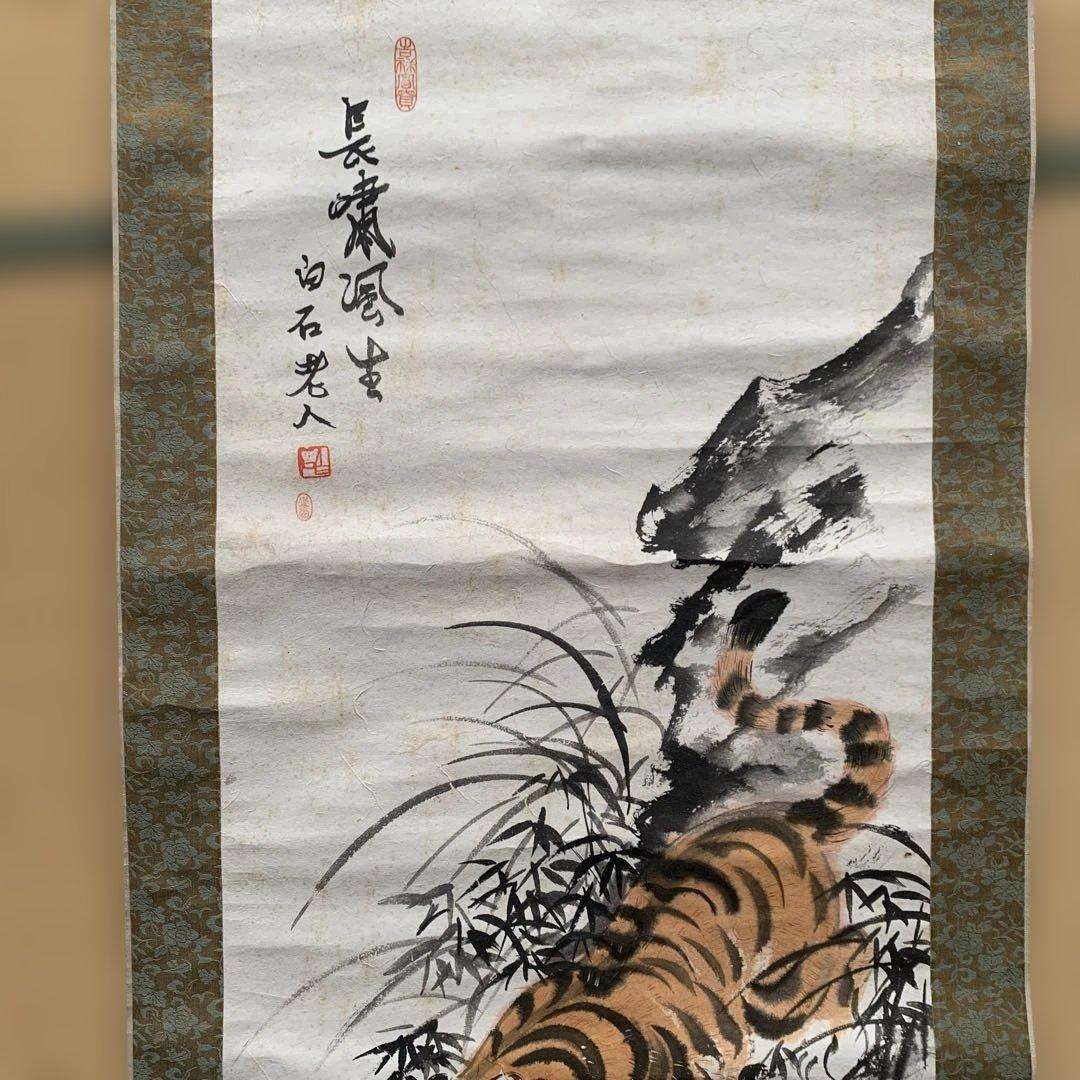 長嘯風生
白石老人